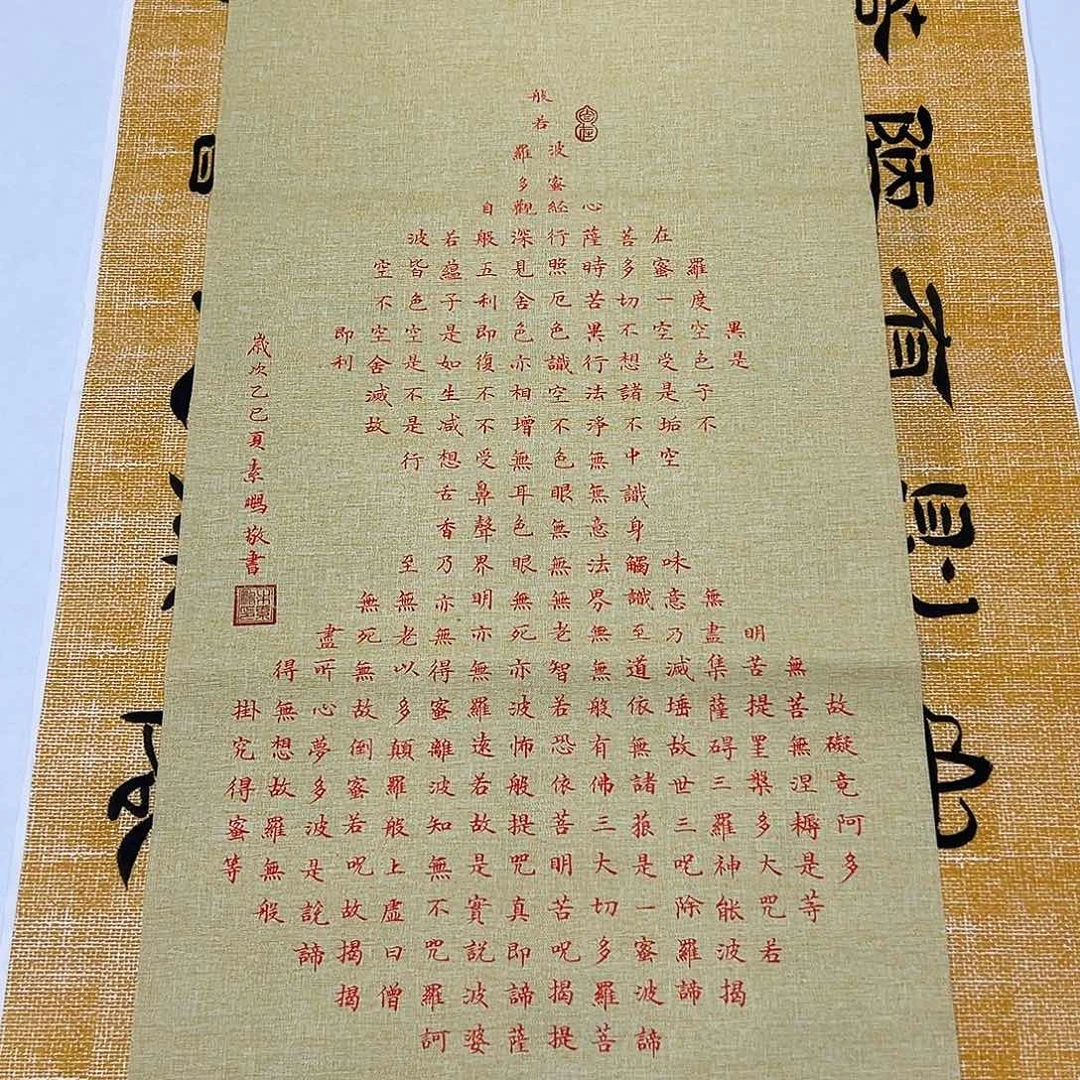 般
若
波羅
蜜多
心經觀自
在菩薩行深般若波
羅蜜多時照見五蘊皆空
度一切苦厄舍利子色不
異空空不異色色即是空空即
是色受想行識亦復如是舍利
子是諸法空相不生不滅
不垢不淨不增不减是故
空中無色無受想行
識無眼耳鼻舌
身意無色聲香
味觸法無眼界乃至
無意識界無無明亦無無
明盡乃至無老死亦無老死盡
無苦集減道無智亦無得以無所得
故菩提薩埵依般若波羅蜜多故心無掛
礙無罣碍故無有恐怖遠離顛倒夢想究
竟涅槃三世諸佛依般若波羅蜜多故得
阿耨多羅三菰三苦提故知般若波羅蜜
多是大神呪是大明咒是無上呪是無等
等咒能除一切苦真實不虛故說般
若波羅蜜多呪即説咒曰揭諦
揭諦波羅揭諦波羅僧揭
諦菩提薩婆訶
歲次乙巳夏素鵬敬書